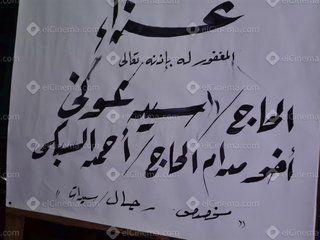 عزاء
المغفور له بإذنه تعالى
الحاج / سيد عوني
أخو مدام الحاج / أحمد السبكى
رجال / سيدات
elCinema.com